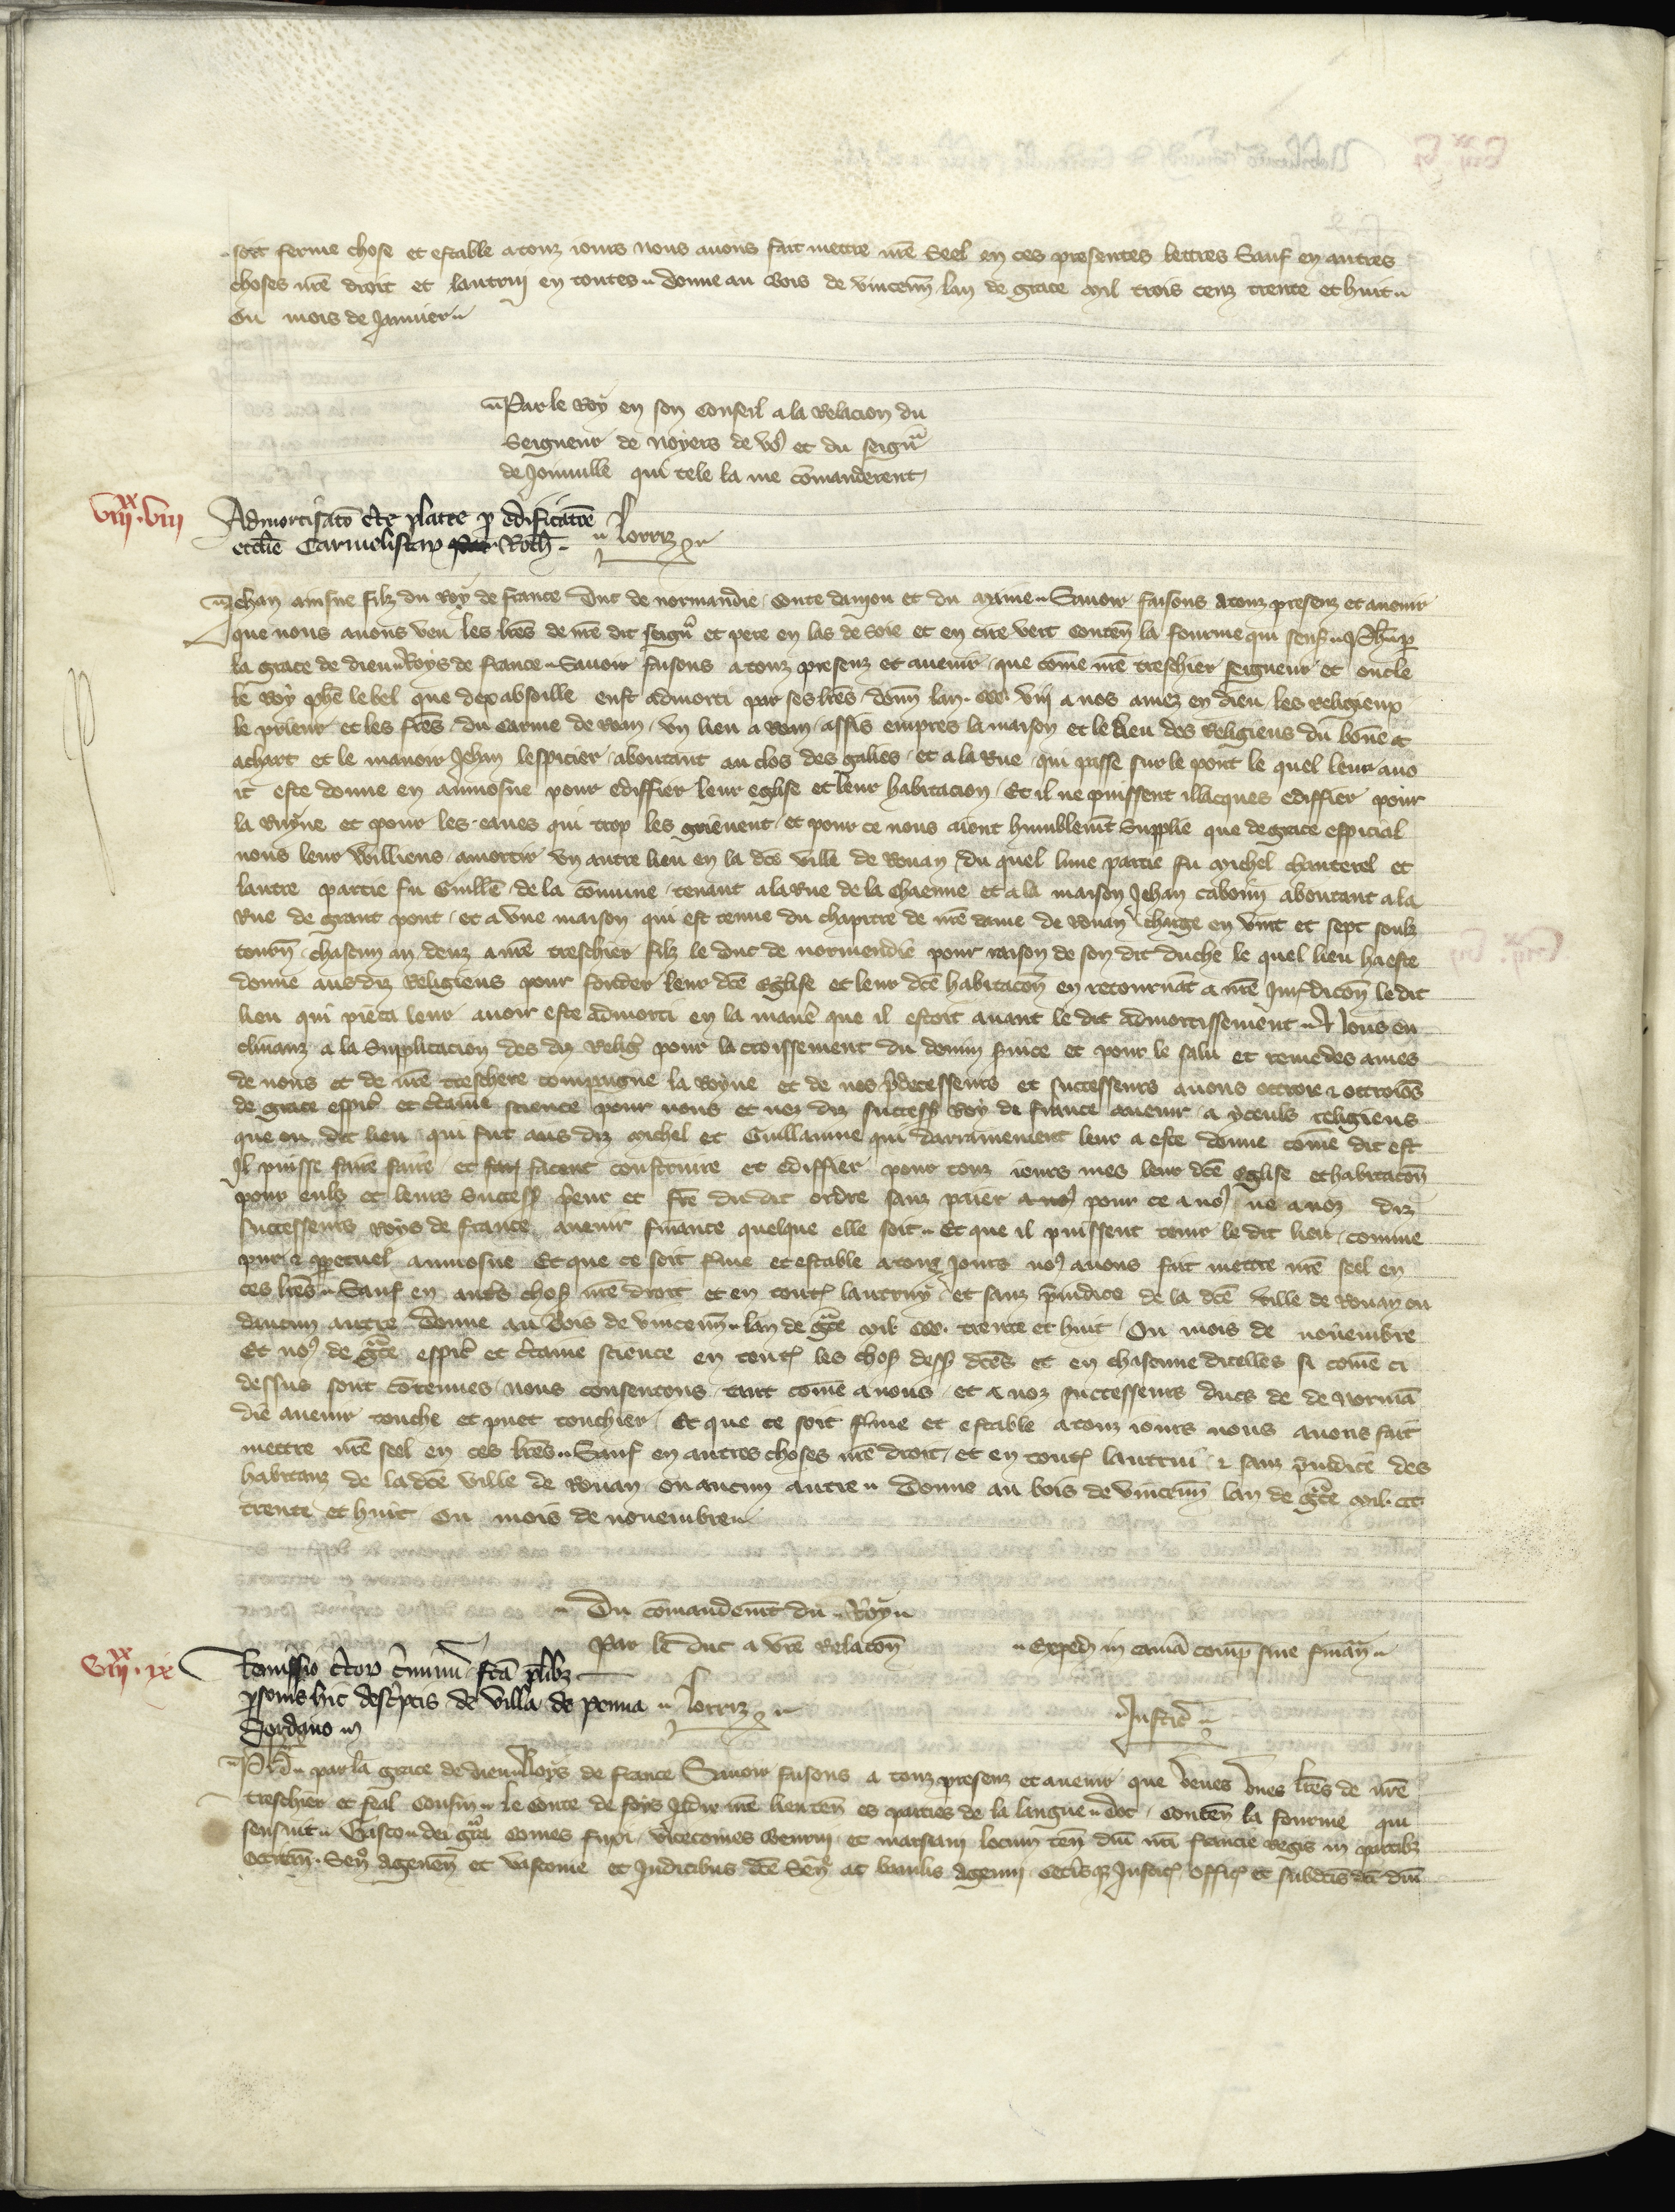 soit ferme chose et estable a touz iours nous auons fait mettre nre Seel en ces presentes lettres Sauf en autres
choses nre droit et lautruy en toutes Donne au Bois de vincenn lan de grace mil trois cenz trente et huit
Ou mois de Januier
Par le Roy en son Conseil a la Relacion du
Seigneur de Noyers de vo9 et du seignr
de Joinuille qui tele la me comanderent
viixx viii
Admortisato cte platee p edificatoe
ecclie Carmelistar Roth
Lorriz
Jehan ainsne filz du Roy de france Duc de normandie Conte daniou et du maine Sauoir faisons a touz presenz et auenir
que nous auons veu les lres de nre dit seignr et pere en las de soie et en cire vert conten la fourme qui sensuit Ph p
la grace de dieu Roys de france Sauoir faisons a touz presenz et auenir que come nre treschier seigneur et oncle
le Roy phe le bel que dex absoille eust admorti par ses lres donn lan ccc viij a nos amez en dieu les Religieux
le prieur et les fres du carme de Roan vn lieu a Roan assis empres la maison et le lieu des Religieus du bonne
achart et le manoir Jehan lespicier aboutant au clos des galies et a la Rue qui passe sur le pont le quel leur auo
it este donne en aumosne pour ediffier leur eglise et leur habitacion Et il ne puissent illecques ediffier pour
la Ruyne et pour les eaues qui trop les grieuent et pour ce nous aient humblemt Supplie que de grace espicial
nous leur Willions amortir vn autre lieu en la dce ville de Rouan du quel lune partie fu michel chanterel et
lautre partie fu Guille de la comune tenant a la Rue de la chaenne et a la maison Jehan cabouin aboutant a la
Rue de grant pont et a vne maison qui est tenue du chapitre de nre dame de Rouan charge en vint et sept soulz
tourn chascun an deuz a nre treschier filz le duc de normendie pour raison de son dit duche le quel lieu ha este
donne aus diz Religieus pour fonder leur dce Eglise et leur dce habitacon en retournat a nre Juridicon le dit
lieu qui pieca leur auoit este admorti en la manie que il estoit auant le dit admortissement Nous en
clinanz a la Supplicacion des diz Relig pour lacroissement du diuin seruice et pour le salu et remede des ames
de nous et de nre treschere compaigne la Royne et de nos predecesseurs et successeurs auons ottroie et ottroions
de grace espicl et certaine science pour nous et noz diz success Roys de france auenir a yceuls religieus
que ou dit lieu qui fut aus diz michel et Guillaume qui darrainement leur a este donne come dit est
Il puisse faire faire et facent construire et ediffier pour touz iours mes leur dce eglise et habitacon
pour eulz et leurs success prieur et fre du dit ordre sanz paier a no9 pour ce a no9 ne a noz diz
successeurs Roys de france auenir finance quelque elle soit Et que il puissent tenir le dit lieu comme
pur et ppetuel aumosne Et que ce soit ferme et estable a touz Jours no9 auons fait mettre nre seel en
ces lres Sauf en autres chos nre droit et en toutes lautruy et sanz preiudice de la dce ville de Rouan ou
daucun autre Donne au Bois de vincenn lan de gce mil ccc trente et huit Ou mois de nouembre
Et no9 de gce espicl et certaine science en toutes les chos dess dces et en chascune dicelles si come ci
dessus sont contenues nous consentons tant come a nous et a noz successeurs ducs de de Norma
die auenir touche et puet touchier Et que ce soit ferme et estable a touz iours nous auons fait
mettre nre seel en ces lres Sauf en autres choses nre droit et en toutes lautrui et sanz preiudice des
habitanz de la dce ville de Rouan ou aucun autre Donne au bois de vincenn lan de gce mil ccc
trente et huit Ou mois de nouembre
Du comandemt du Roy
Par le duc a vre Relacon
Exped in cama comp sine finan
viixx ix
Remissio certor criminu fca plibz
psonis hic descriptis de villa de penna
Lorriz
Justic
Ph par la grace de dieu Roys de france Sauoir faisons a touz presenz et auenir que veues vnes lres de nre
treschier et feal Cousin le Conte de foys Jadis nre lieuten es parties de la langue doc conten la fourme qui
sensuit Gasto dei gra Comes fuxi vicecomes Bearnii et marsani locum ten dni nri francie Regis in partibz
occitan Sen Agenen et vasconie et Judicibus dce Sen ac baiulis Agenni Justic offic et subditis dci dni